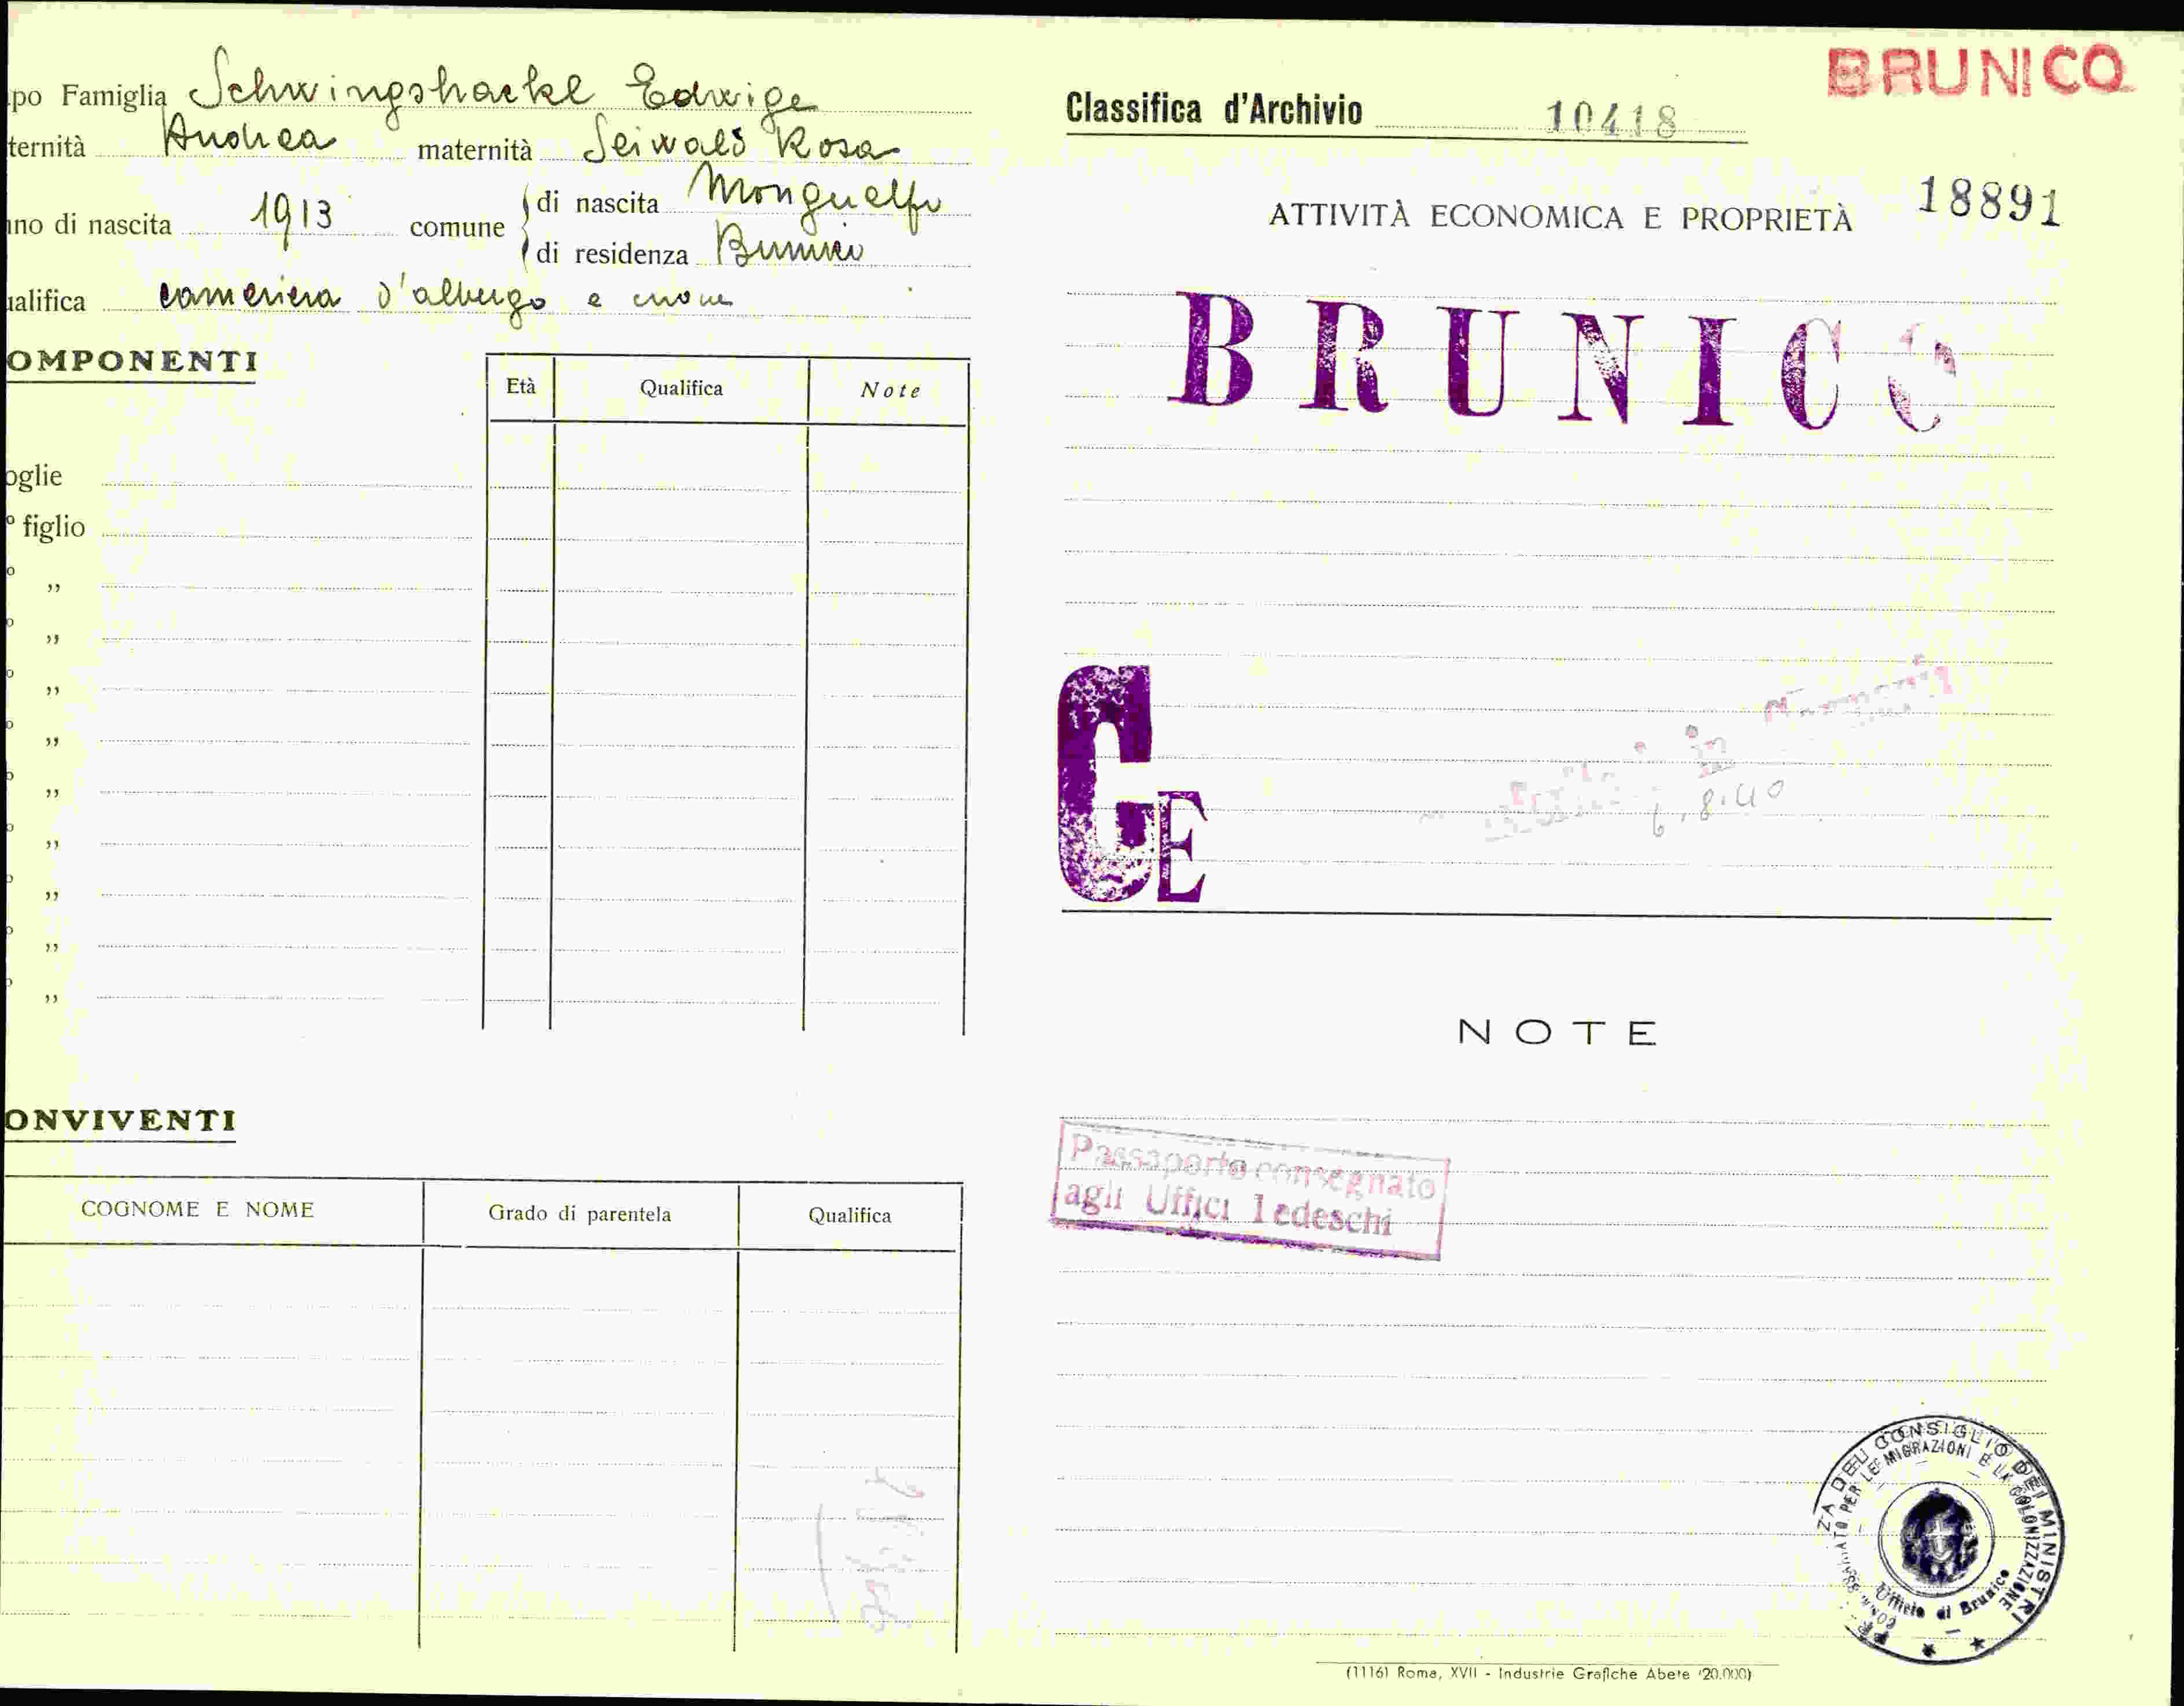 po Famiglia Schwingshackl Edvige
ternità Andrea maternità Seiwald Rosa
no di nascita 1913 comune di nascita Monguelfo
di residenza Brunico
alifica cameriera d'albergo e
OMPONENTI
Età Qualifica Note
oglie
° figlio
° „
° „
° „
° „
° „
° „
° „
° „
° „
ONVIVENTI
COGNOME E NOME Grado di parentela Qualifica
BRUNICO
Classifica d'Archivio 10418
ATTIVITÀ ECONOMICA E PROPRIETÀ 18891
BRUNICO
GE
in
6.8.40
NOTE
Passaporto consegnato
agli Uffici Tedeschi
ZA DEL CONSIGLIO DEI MINISTRI
PER LE MIGRAZIONI E LA COLONIZZAZIONE
Ufficio di Brunico
(11161) Roma, XVII - Industrie Grafiche Abete (20.000)